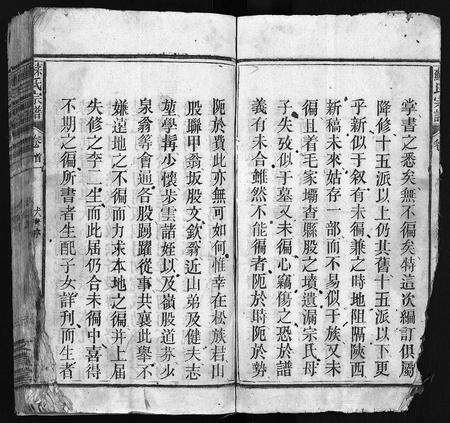 掌書之悉矣無不徧矣特這次編訂俱屬
降修十五派以上仍其舊十五派以下更
乎新似于叙有未徧兼之時地阻隔陝西
新稿未來姑存一部而不易似于族又未
徧且着毛家壩查縣股之墳遺漏宗氏母
子失歿似于墓又未徧心竊傷之恐於譜
義有未合雖然不能徧者阨於時阨於勢
阨於費此亦無可如何惟幸在松族君山
股聯甲翁坂股文欽翁近山弟及健夫志
堃學搆少懷步雲諸姪以及嶺股道芬少
泉翁等會通各股踴躍從事共襄此舉不
嫌遠地之不徧而力求本地之徧并上屆
失修之李二生而此屆仍合未徧中喜得
不期之徧所書者生配子女詳刊而生者
宗譜
卷首